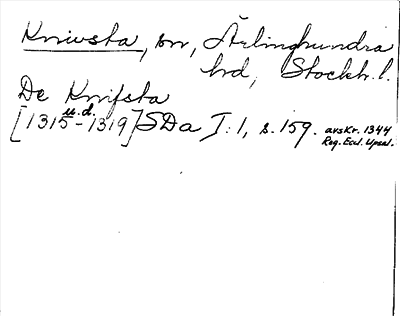 Knivsta, sn, Ärlinghundra
hd, Stockh. l.
De Knifsta
u.d.
[1315-1319] SDa I:1, s. 159. avskr. 1344
Reg. Eccl. Upsal.